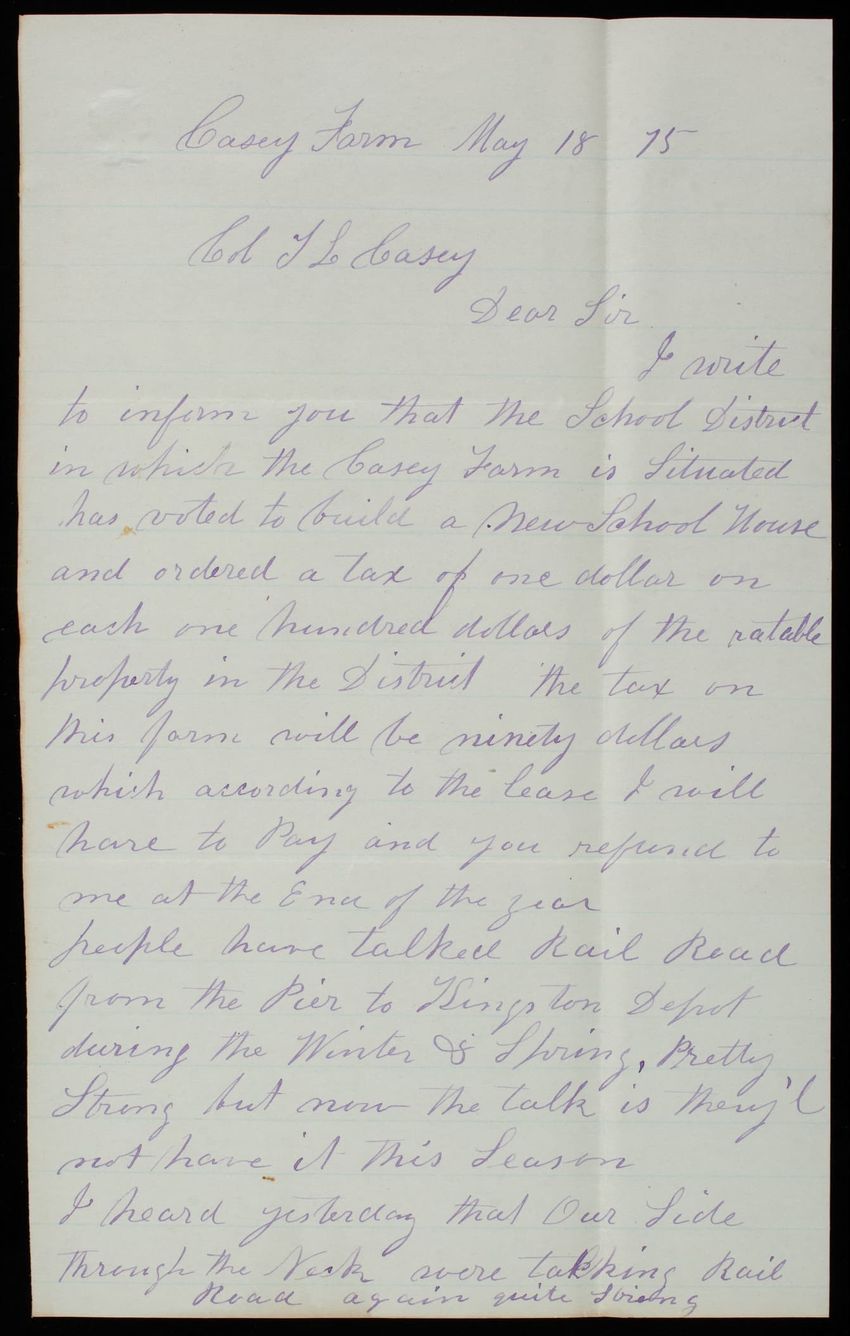 Casey Farm May 18 75
Col T L Casey
Dear Sir
I write
to inform you that the School District
in which the Casey Farm is Situated
has voted to build a New School House
and ordered a tax of one dollar on
each one hundred dollars of the ratable
property in the District the tax on
this farm will be ninety dollars
which according to the lease I will
have to Pay and you refund to
me at the End of the year
people have talked Rail Road
from the Pier to Kingston Depot
during the Winter & Spring, Pretty
Strong but now the talk is they'l
not have it this Season
I heard yesterday that Our Side
through the Neck were talking Rail
Road again quite Strong